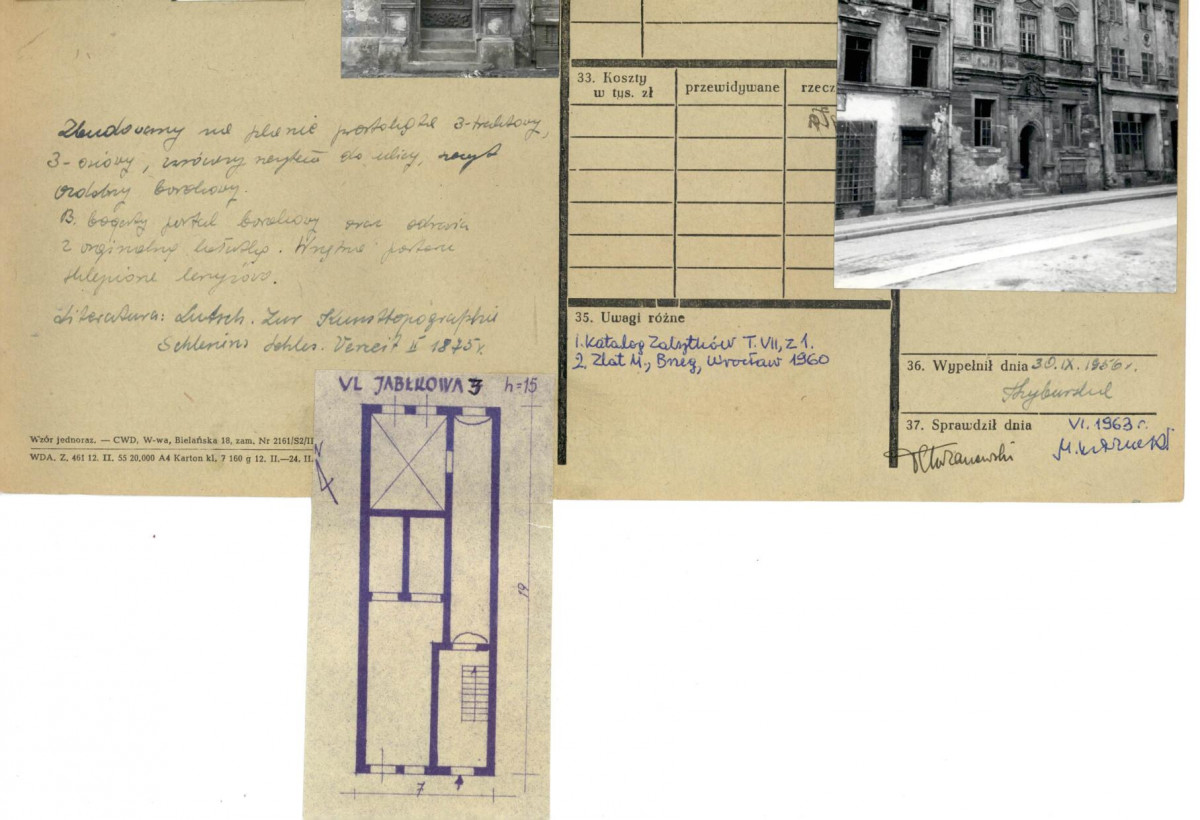 Zbudowany na planie prostokąta 3-traktowy,
3-osiowy, zwrócony szczytem do ulicy, szczyt
ozdobny barokowy.
B. bogaty portal barokowy oraz
z orginalną. Wnętrze parteru
sklepione.
Literatura: Lutsch. Zur Kunsttopographie
Schlesiens Schles. Vorzeit II 1875r.
Wzór jednoraz. — CWD, W-wa, Bielańska 18, zam. Nr 2161/S2/II
WDA. Z. 461 12. II. 55 20.000 A4 Karton kl. 7 160 g 12. II.—24. II.
UL JABŁKOWA 3 h=15
19
7
33. Koszty
w tys. zł
przewidywane
rzecz
35. Uwagi różne
1. Katalog Zabytków T. VII, z 1.
2. Zlat M., Brzeg, Wrocław 1960
36. Wypełnił dnia 30.IX.1956r.
37. Sprawdził dnia VI. 1963 r.